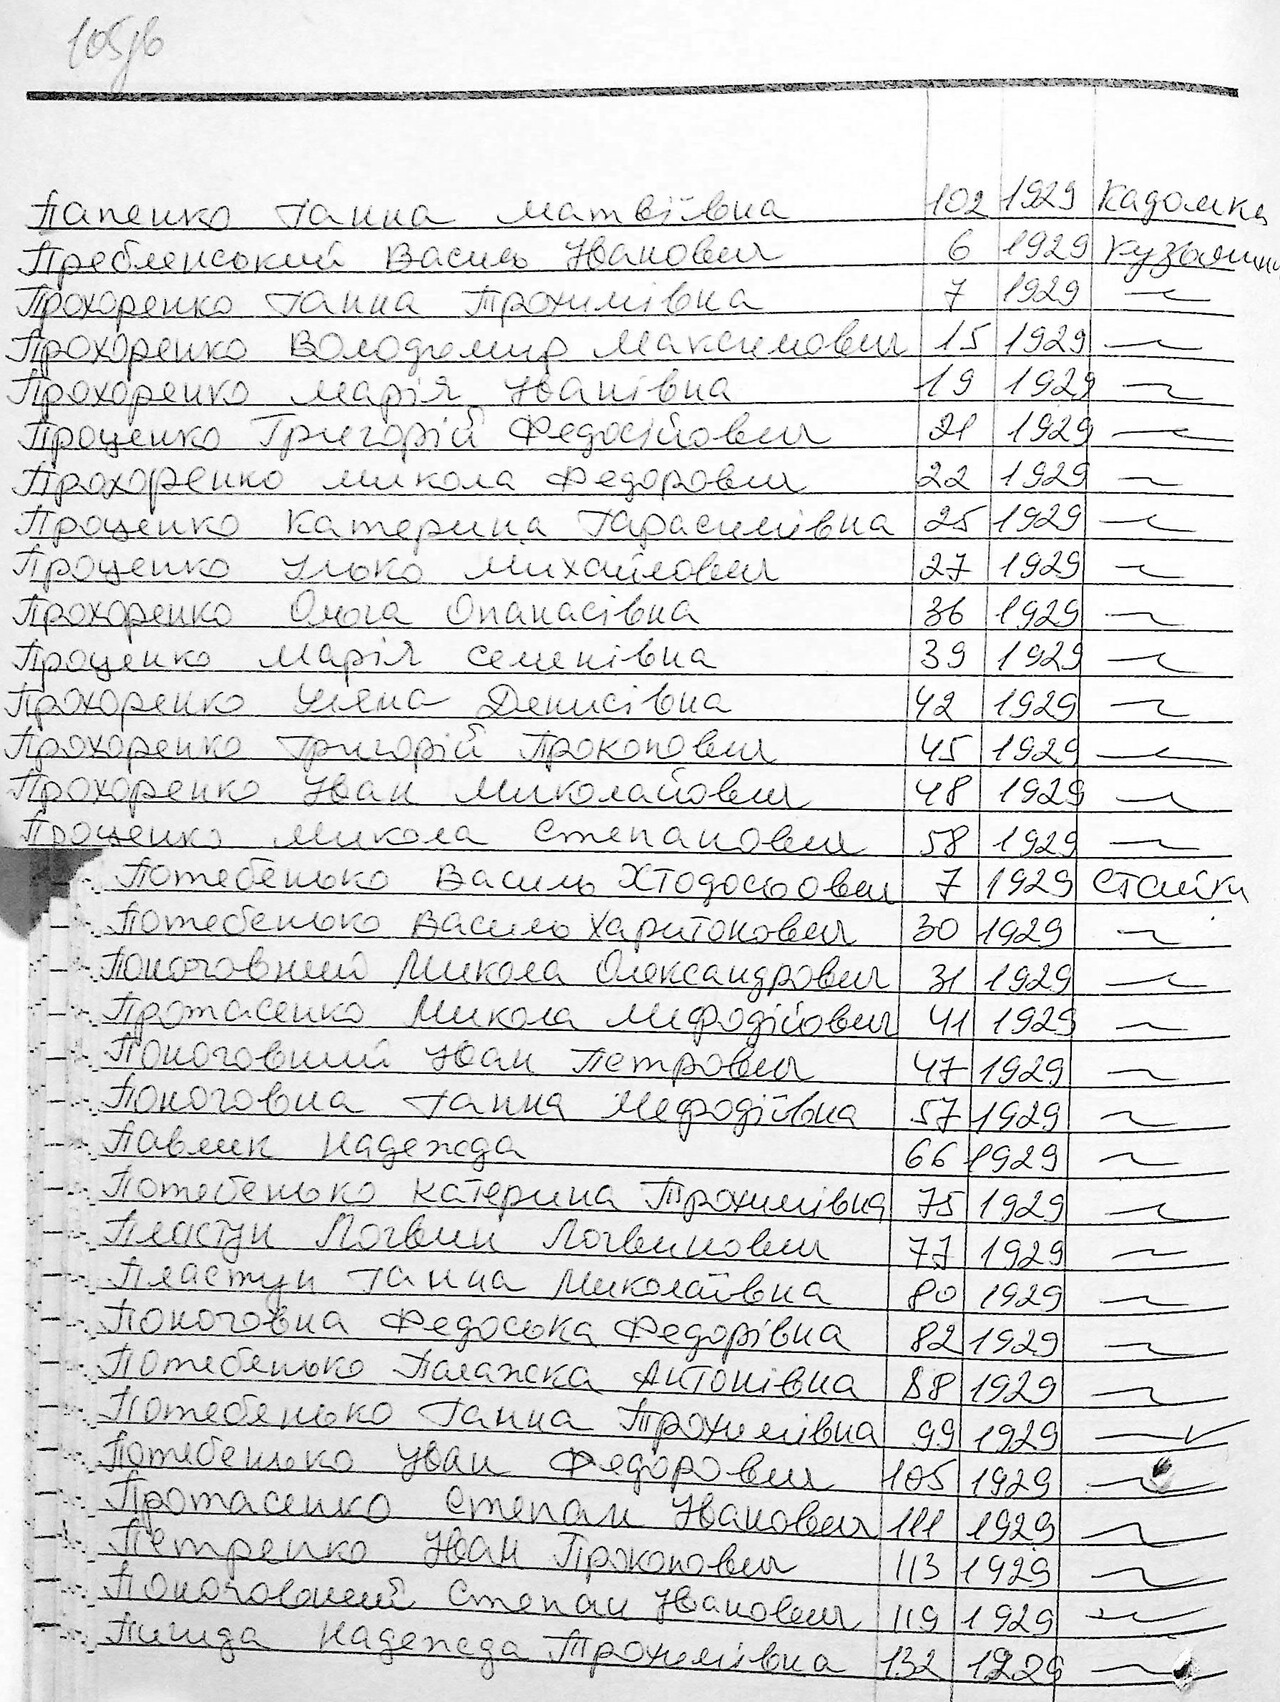 105зв
Папенко Ганна Матвіївна 102 1929 Кадомка
Пребленський Василь Іванович 6 1929
Прохоренко Ганна Трохимівна 7 1929 ~
Прохоренко Володимир Максимович 15 1929 ~
Прохоренко Марія Іванівна 19 1929 ~
Проценко Григорій Федосійович 21 1929 ~
Прохоренко Микола Федорович 22 1929 ~
Проценко Катерина Гарасимівна 25 1929 ~
Проценко Улько Михайлович 27 1929 ~
Прохоренко Ольга Опанасівна 36 1929 ~
Проценко Марія Семенівна 39 1929 ~
Прохоренко Уляна Денисівна 42 1929 ~
Прохоренко Григорій Прокопович 45 1929 ~
Прохоренко Іван Миколайович 48 1929 ~
Проценко Микола Степанович 58 1929 ~
Потебенько Василь Хтодосьович 7 1929 Стайки
Потебенько Василь Харитонович 30 1929 ~
Поноговний Микола Олександрович 31 1929 ~
Протасенко Микола Мефодійович 41 1929 ~
Поноговний Іван Петрович 47 1929 ~
Поноговна Ганна Мефодіївна 57 1929 ~
Павлик Надежда 66 1929 ~
Потебенько Катерина Трохимівна 75 1929 ~
Пластун Логвин Логвинович 77 1929 ~
Пластун Ганна Миколаївна 80 1929 ~
Поноговна Федоська Федорівна 82 1929 ~
Потебенько Палажка Антонівна 88 1929 ~
Потебенько Ганна Трохимівна 99 1929 ~
Потебенько Іван Федорович 105 1929 ~
Протасенко Степан Іванович 111 1929 ~
Петренко Іван Прокопович 113 1929 ~
Поноговний Степан Іванович 119 1929 ~
Надежда Трохимівна 132 1929 ~